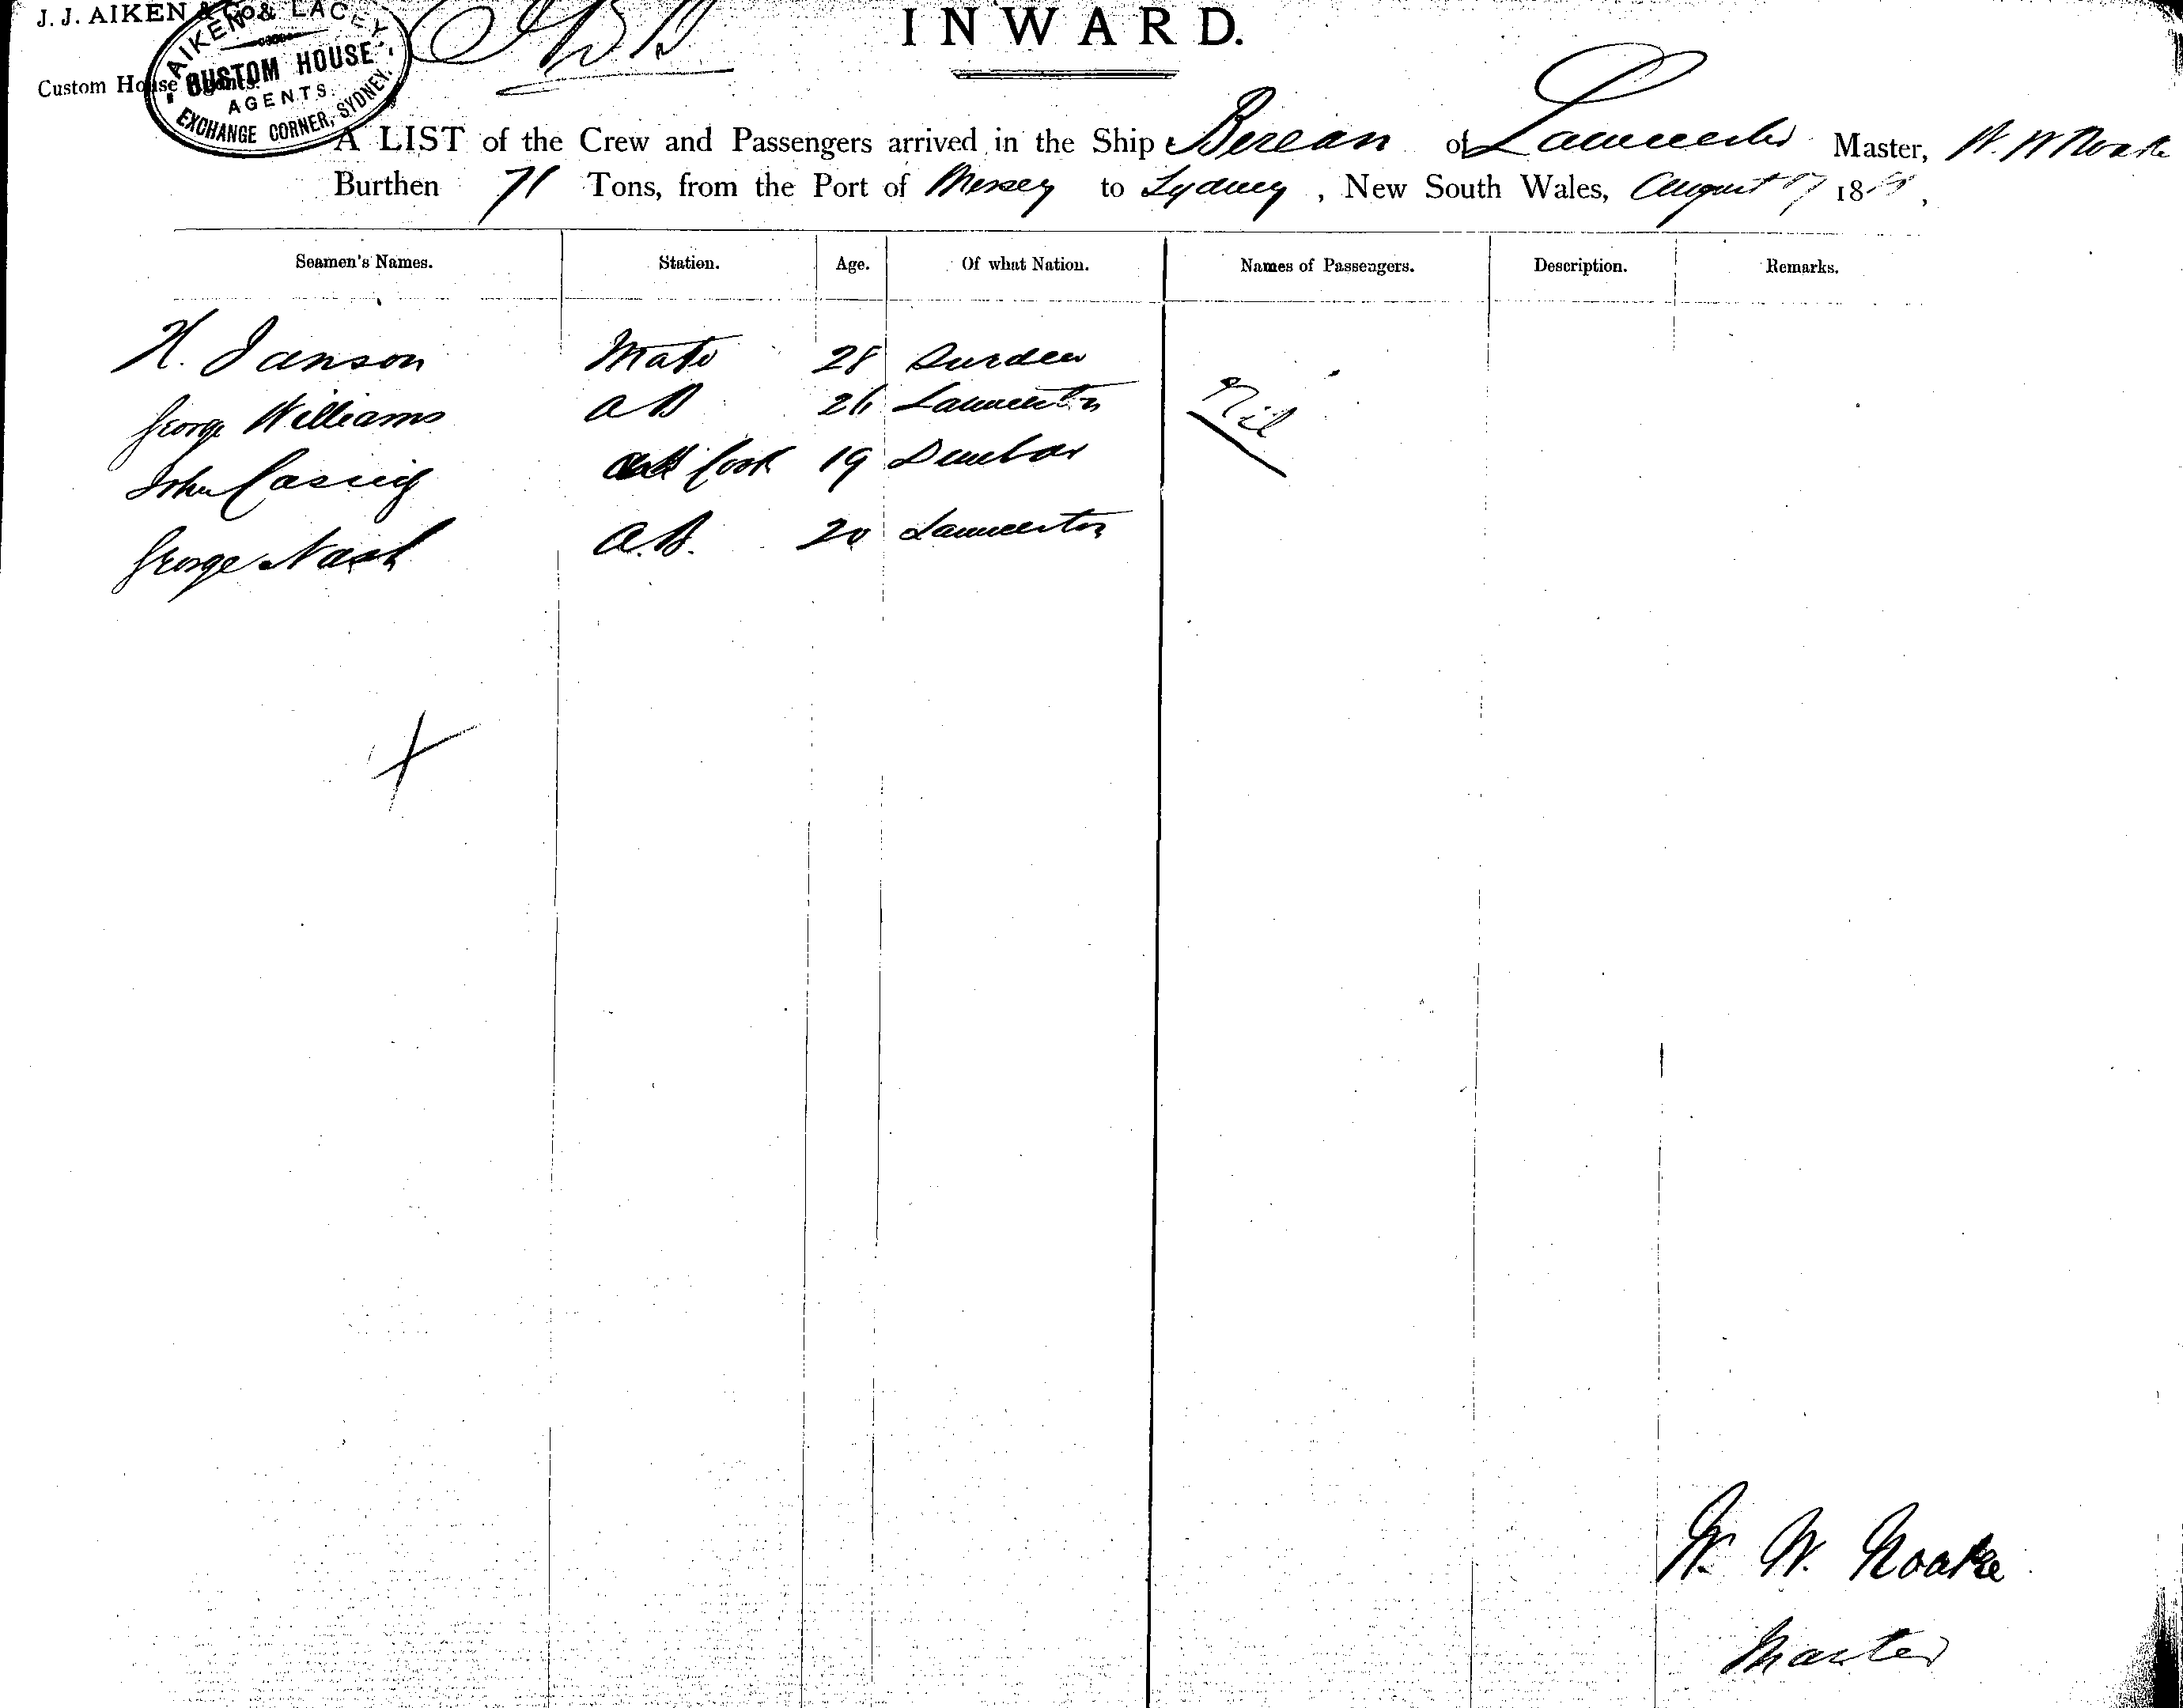 J. J. AIKEN & Co.
INWARD.
Custom House Agents.
AIKEN & LACEY,
CUSTOM HOUSE
AGENTS.
EXCHANGE CORNER, SYDNEY.
A LIST of the Crew and Passengers arrived in the Ship Berean of Launceston Master, W. W. Noake
Burthen 71 Tons, from the Port of Mersey to Sydney, New South Wales, August 17 18
Seamen's Names. Station. Age. Of what Nation. Names of Passengers. Description. Remarks.
H. Janson Mate 28 Nil
George Williams AB 26 Launceston
John Cook 19 Dunbar
George Nash A.B. 20 Launceston
W. W. Noake
Master